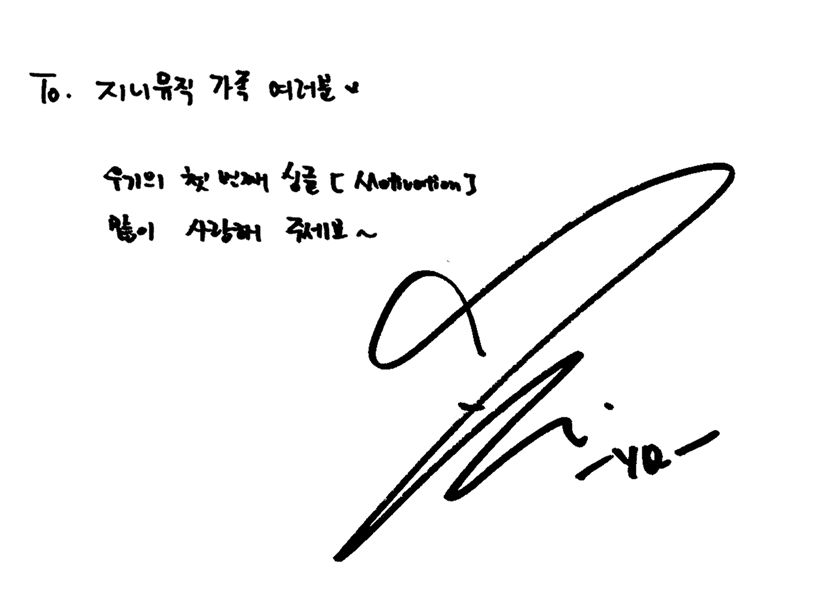 To. 지니뮤직 가족 여러분♥
우기의 첫 번째 싱글 [Motivation]
많이 사랑해 주세요~
-YQ-